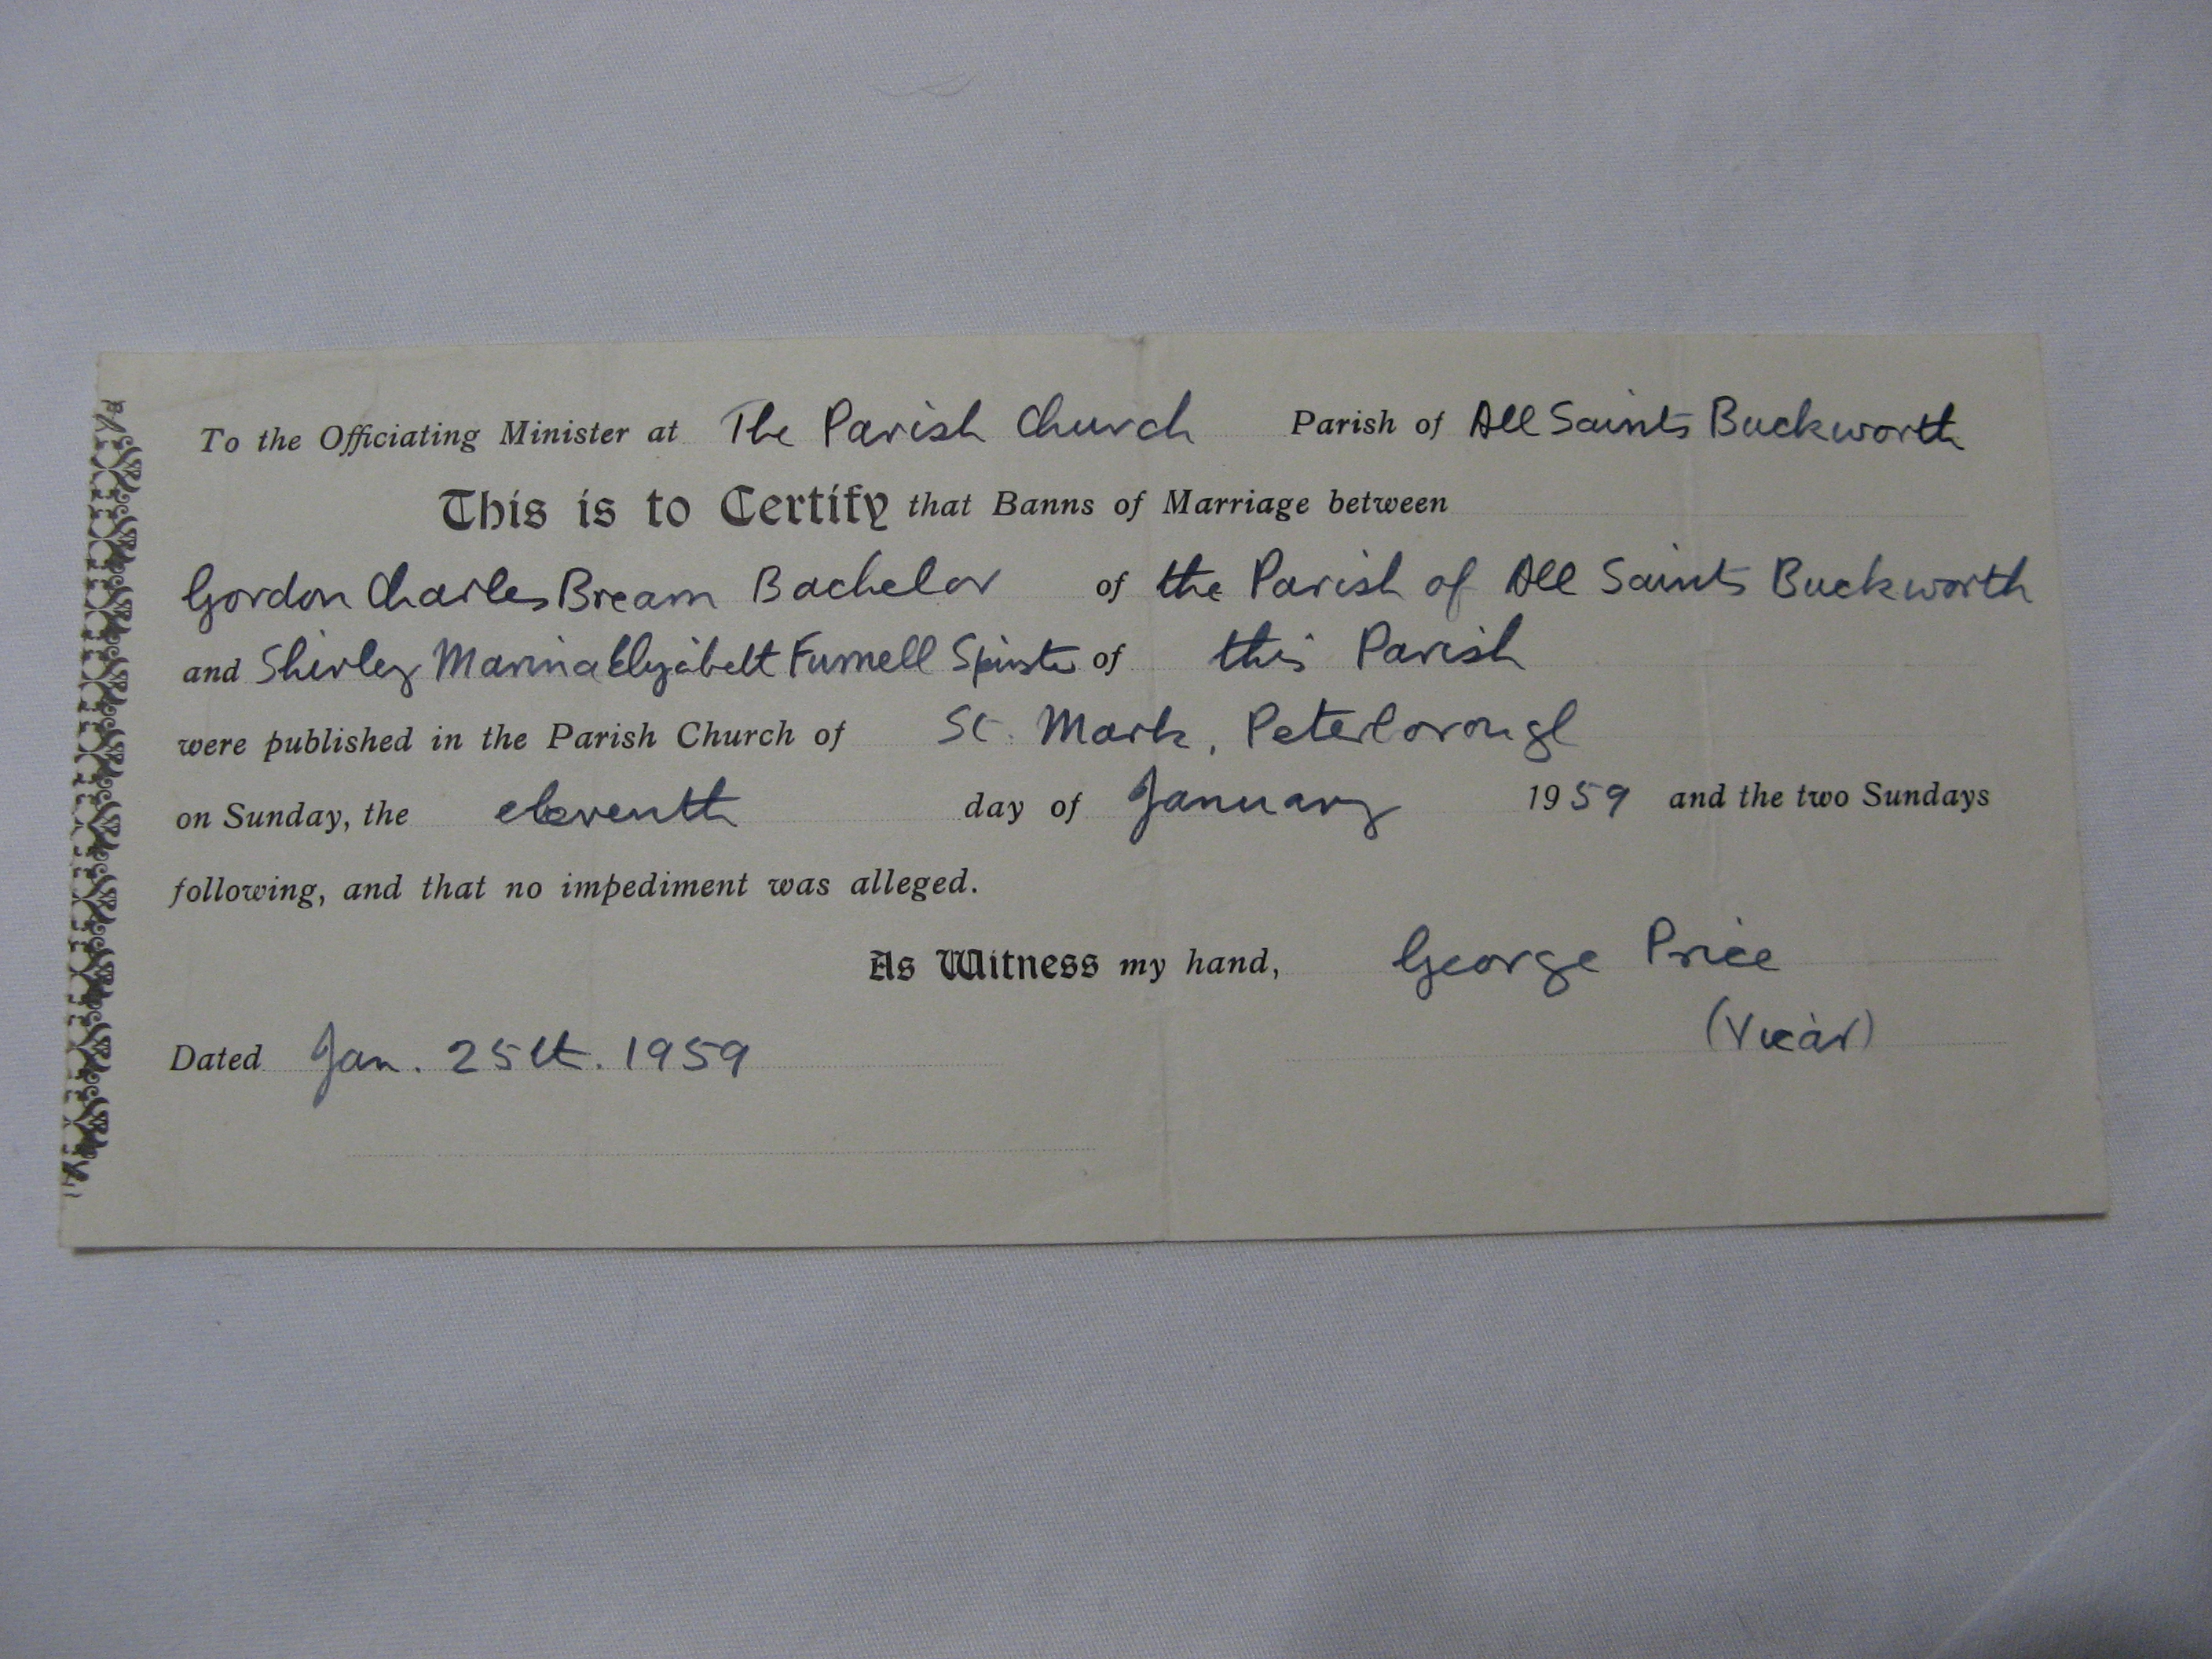 To the Officiating Minister at The Parish Church Parish of All Saints Buckworth
This is to Certify that Banns of Marriage between
Gordon Charles Bream Bachelor of the Parish of All Saints Buckworth
and Shirley Marina Elizabeth Furnell Spinster of this Parish
were published in the Parish Church of St. Mark, Peterborough
on Sunday, the eleventh day of January 1959 and the two Sundays
following, and that no impediment was alleged.
As Witness my hand, George Price
(Vicar)
Dated Jan. 25th. 1959